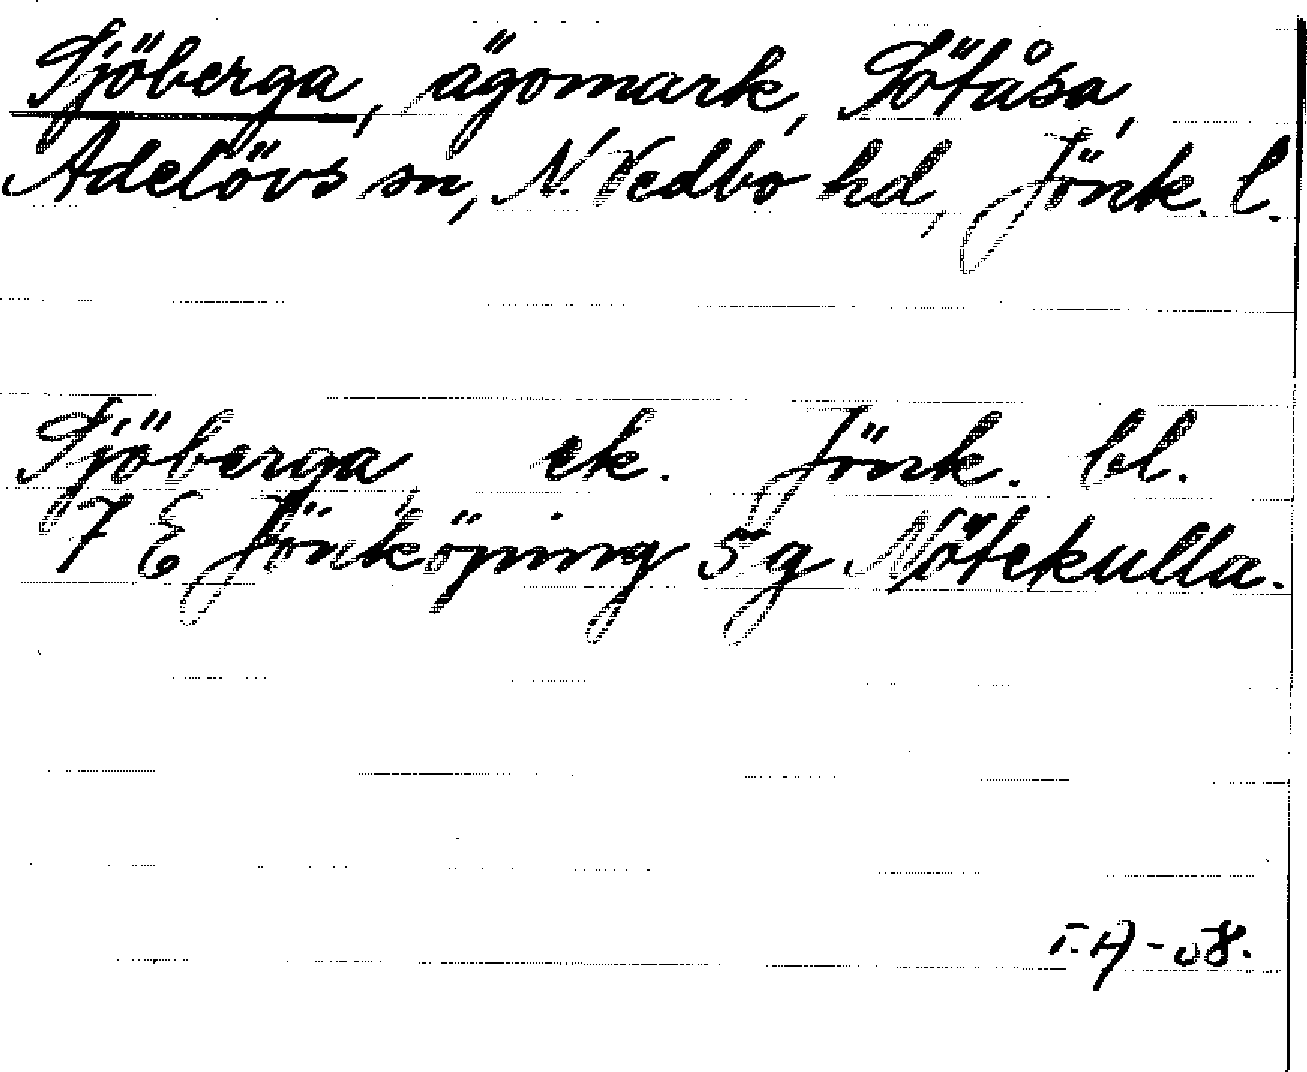 Sjöberga, ägomark, Sötåsa,
Adelövs sn, N. Vedbo hd, Jönk. l.
Sjöberga, ek. Jönk. bl.
7 E Jönköping 5 g Nötekulla.
-58.